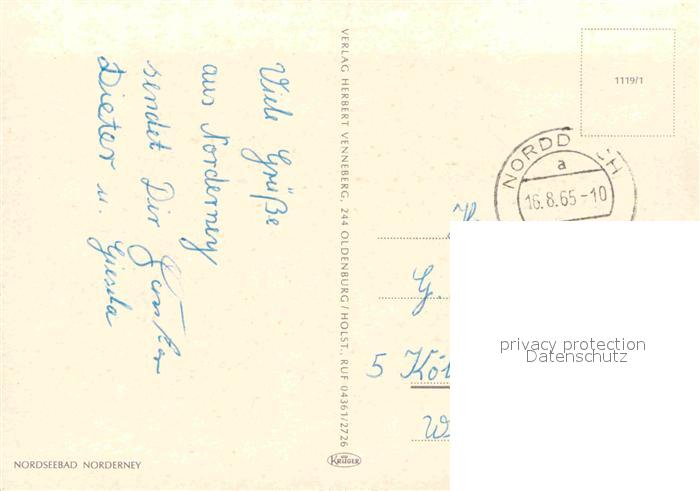 Viele Grüße
aus Norderney
sendet Dir
Dieter u. Gisela
VERLAG HERBERT VENNEBERG, 244 OLDENBURG/HOLST., RUF 04361/2726
1119/1
NORDD CH
a
16.8.65-10
G.
5 Köl
W
privacy protection
Datenschutz
NORDSEEBAD NORDERNEY
KRÜGER